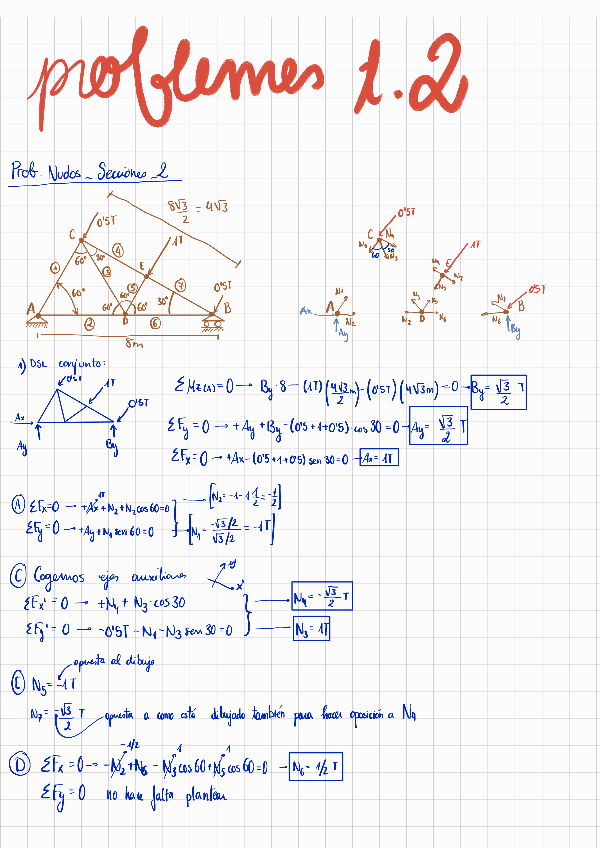 problemes 1.2
Prob. Nudos - Secciones - 2
8√3/2 = 4√3
0'5T
1T
0'5T
C
60° 30°
① ③ ④
E
60°
⑤ ⑦
60° 60° 60° 30°
A D B
② ⑥
8m
0'5T
C N4
60 30
N3
1T
E
N7
N5
0'5T
A N1 N2
Ax
Ay
N2 D N6
N6 B
By
1) DSL conjunto:
0'5T
1T
0'5T
Ax
Ay
By
ΣMz(A) = 0 → By·8 - (1T)(4√3m/2) - (0'5T)(4√3m) = 0 → By = √3/2 T
ΣFy = 0 → +Ay + By - (0'5+1+0'5) cos 30 = 0 → Ay = √3/2 T
ΣFx = 0 → +Ax - (0'5+1+0'5) sen 30 = 0 → Ax = 1T
Ⓐ ΣFx = 0 → +Ax + N2 + N1 cos 60 = 0
1T
[N2 = -1 - 1 1/2 = -1/2]
ΣFy = 0 → +Ay + N1 sen 60 = 0
[N1 = -√3/2 / √3/2 = -1T]
Ⓒ Cogemos ejes auxiliares
y' x'
ΣFx' = 0 → +N4 + N3 · cos 30
N4 = -√3/2 T
ΣFy' = 0 → -0'5T - N1 - N3 sen 30 = 0
N3 = 1T
opuesta al dibujo
Ⓔ N5 = -1T
N7 = -√3/2 T opuesta a como está dibujado también para hacer oposición a N4
-1/2 1 1
Ⓓ ΣFx = 0 → -N2 + N6 - N3 cos 60 + N5 cos 60 = 0 → N6 = 1/2 T
ΣFy = 0 no hace falta plantear